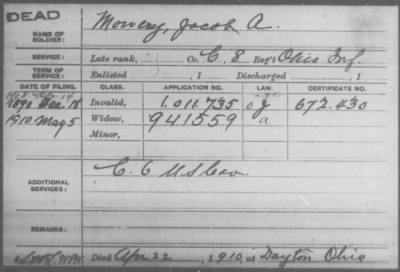 DEAD
NAME OF SOLDIER: Mowery, Jacob A.
SERVICE: Late rank, Co. C, 8 Reg't Ohio Inf.
TERM OF SERVICE: Enlisted , 1 Discharged , 1
DATE OF FILING. CLASS. APPLICATION NO. LAW. CERTIFICATE NO.
1890 Dec. 18 Invalid, 1.011.735 g 672.430
1910 May 5 Widow, 941559 a
Minor,
ADDITIONAL SERVICES: C. 6 U S Cav.
REMARKS:
Died Apr 22 , 1910, at Dayton Ohio